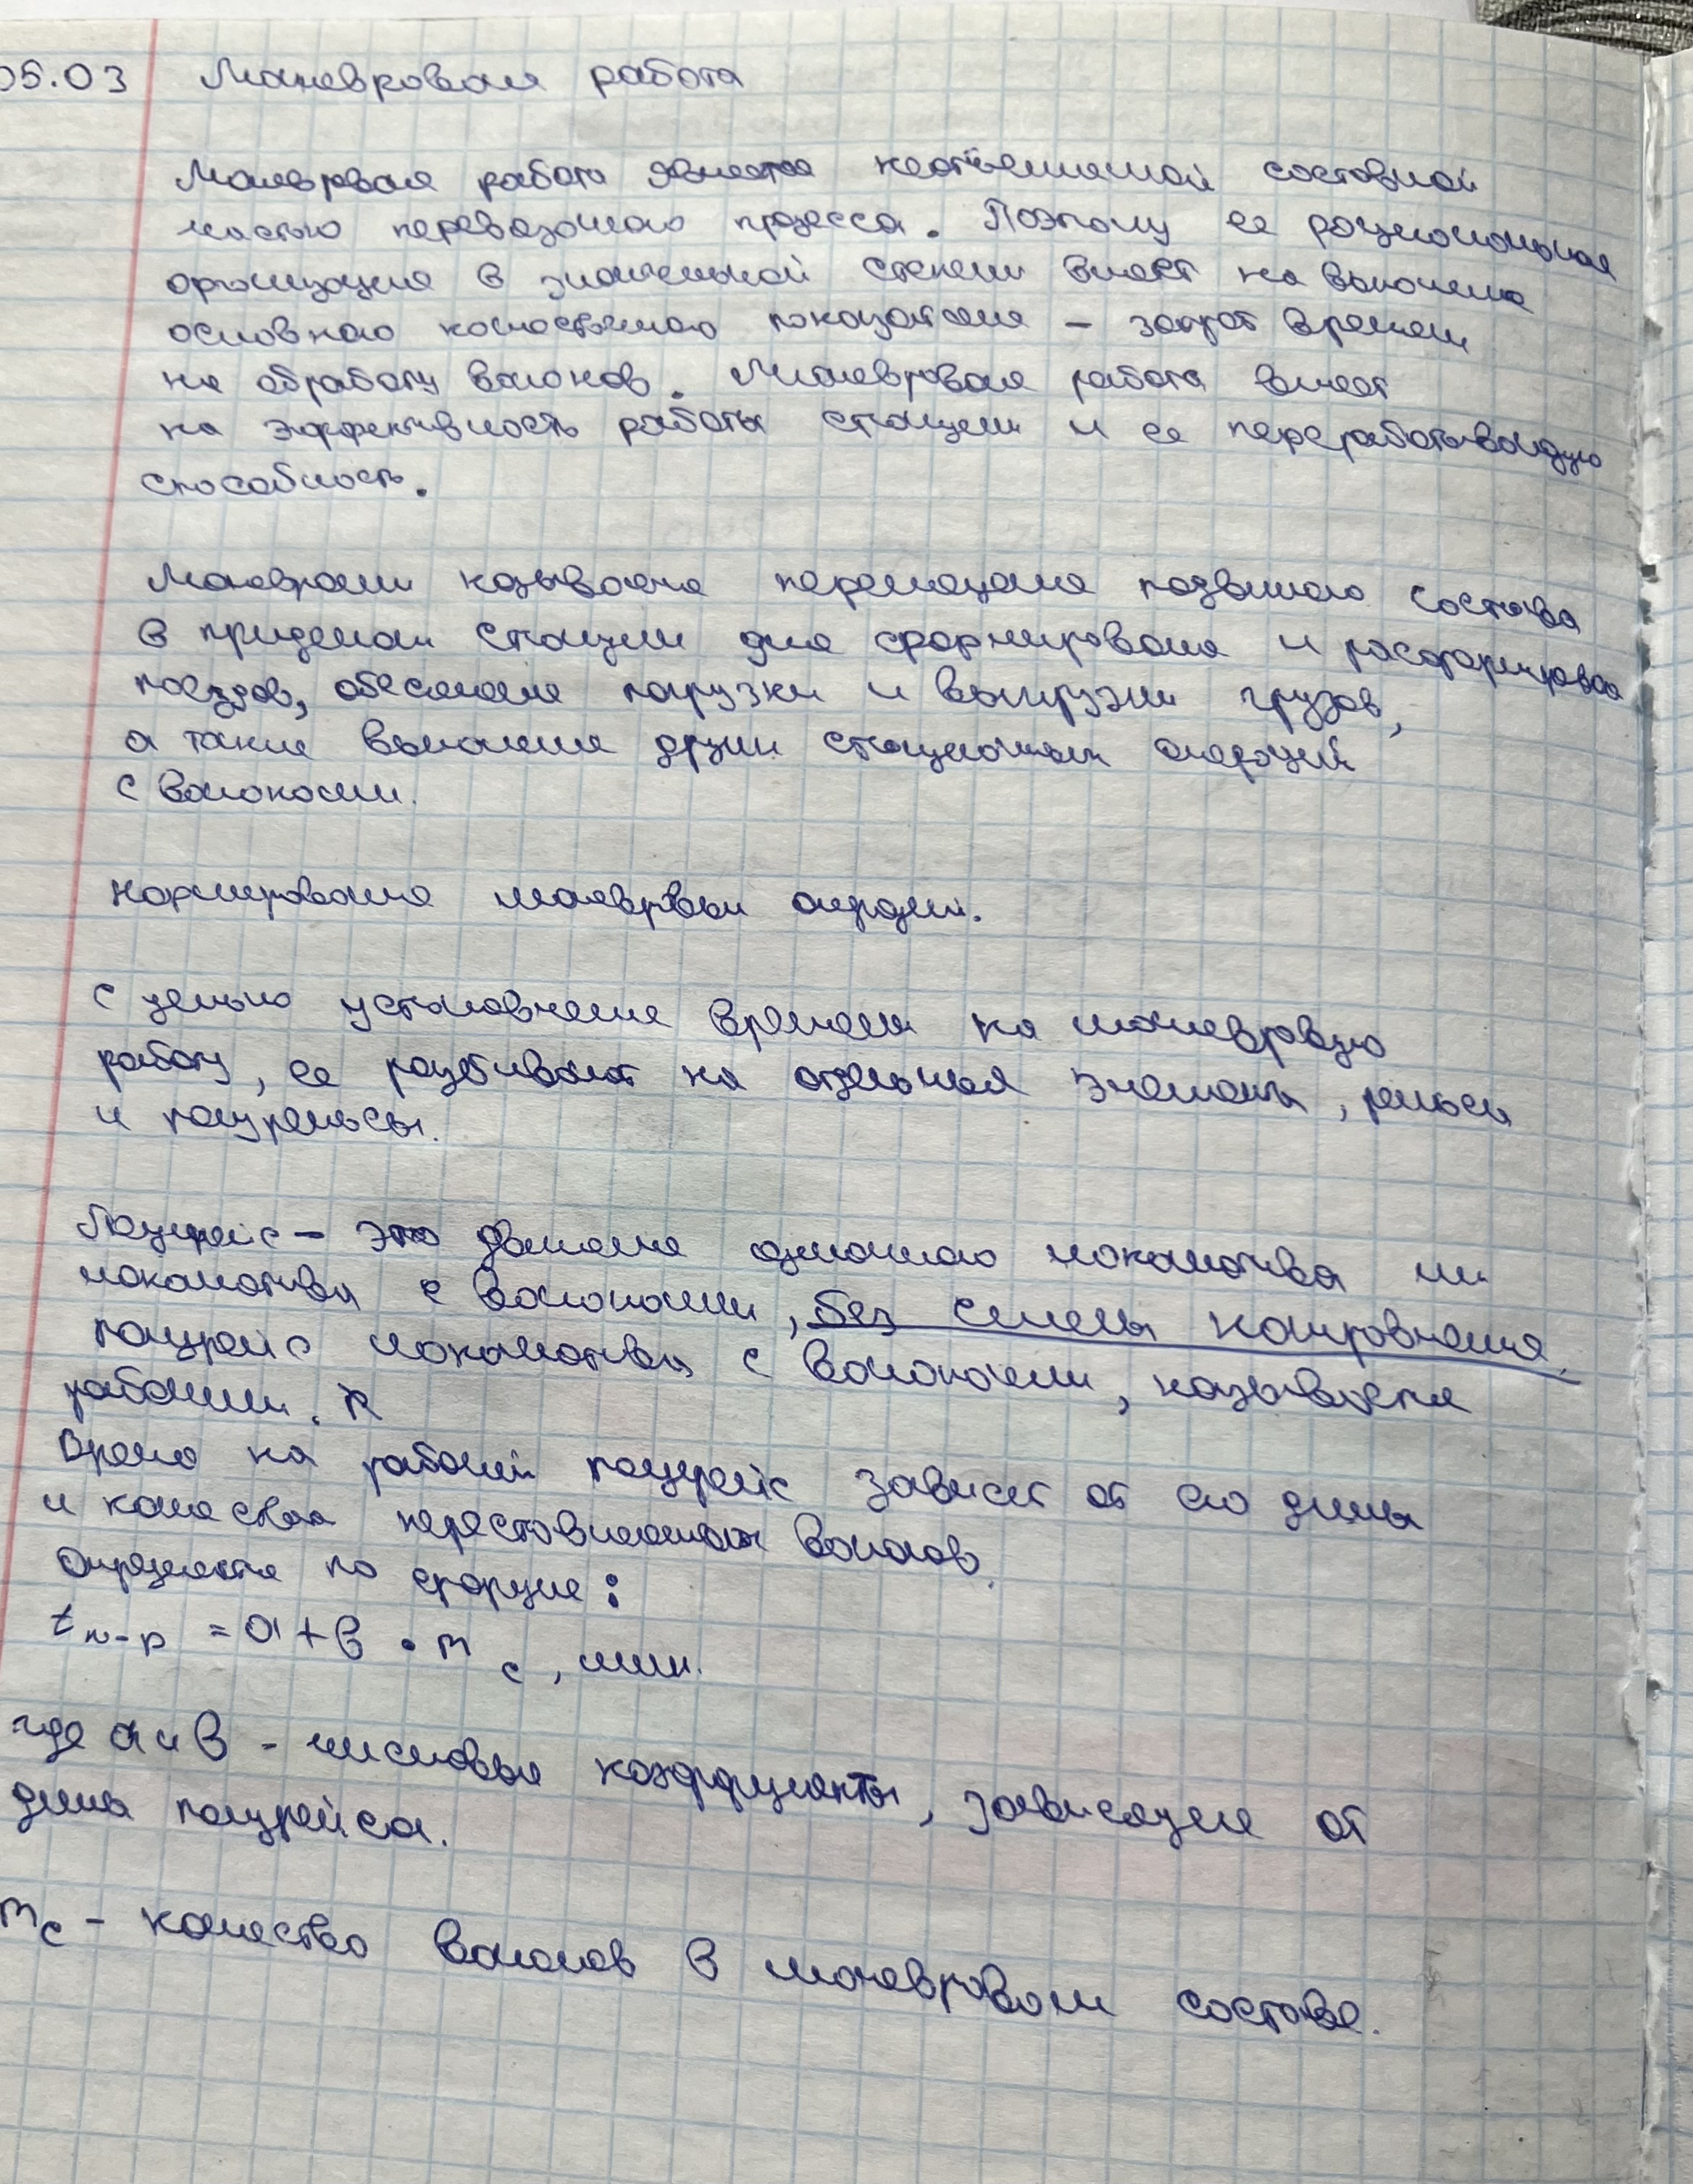 05.03 Маневровая работа
Маневровая работа является неотъемлемой составной
частью перевозочного процесса. Поэтому ее рациональная
организация в значительной степени влияет на выполнение
основного качественного показателя – затрат времени
на обработку вагонов. Маневровая работа влияет
на эффективность работы станции и ее перерабатывающую
способность.
Маневрами называется перемещение подвижного состава
в пределах станции для формирования и расформирования
поездов, обеспечения погрузки и выгрузки грузов,
а также выполнение других станционных операций
с вагонами.
Нормирование маневровых операций.
С целью установления времени на маневровую
работу, ее разбивают на отдельные элементы, рейсы
и полурейсы.
Полурейс – это движение одиночного локомотива или
локомотива с вагонами, без смены направления.
полурейс локомотива с вагонами, называется
рабочим.
Время на рабочий полурейс зависит от его длины
и количества переставляемых вагонов.
Определяется по формуле:
t п-р = a + в · m с, мин.
где a и в - числовые коэффициенты, зависящие от
длины полурейса.
m с - количество вагонов в маневровом составе.